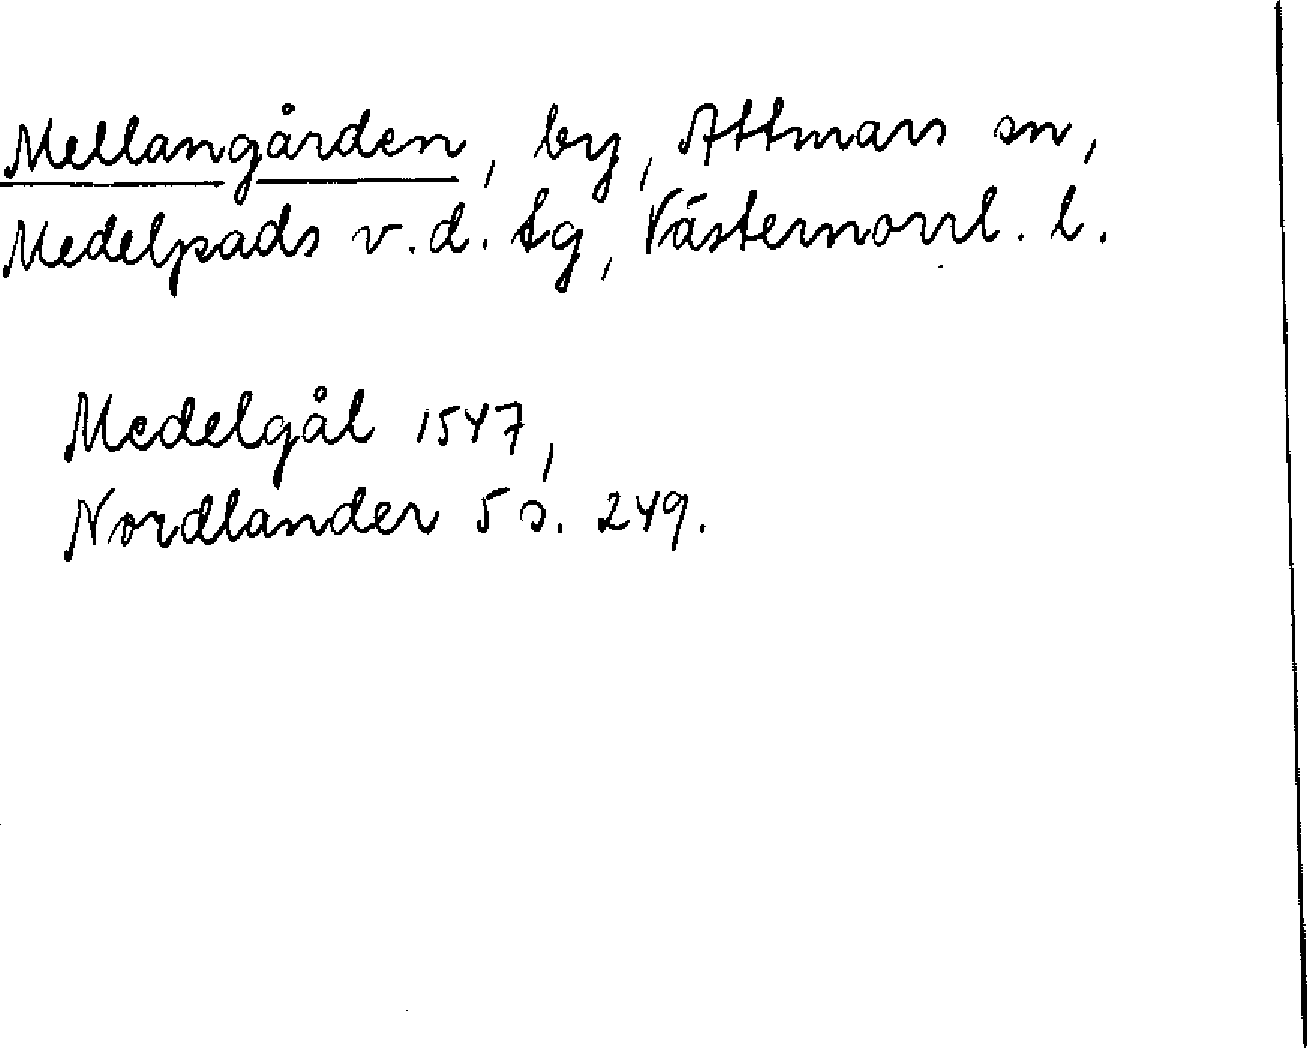 Mellangården, by, Attmars sn,
Medelpads v.d. tg, Västernorrl. l.
Medelgål 1547,
Nordlander 5 s. 249.